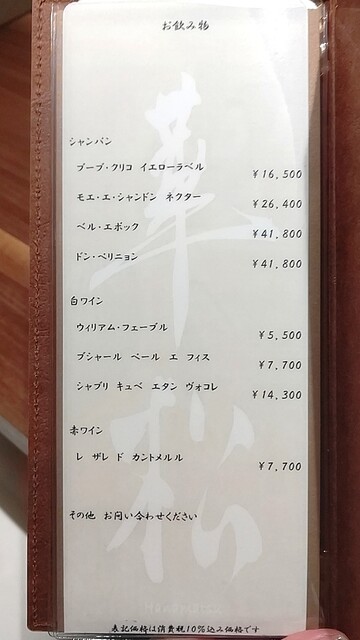 お飲み物
シャンパン
ブーブ・クリコ イエローラベル ¥16,500
モエ・エ・シャンドン ネクター ¥26,400
ベル・エポック ¥41,800
ドン・ペリニョン ¥41,800
白ワイン
ウィリアム・フェーブル ¥5,500
ブシャール ペール エ フィス ¥7,700
シャブリ キュベ エタン ヴォコレ ¥14,300
赤ワイン
レ ザレ ド カントメルル ¥7,700
その他 お問い合わせください
華松
表記価格は消費税10%込み価格です